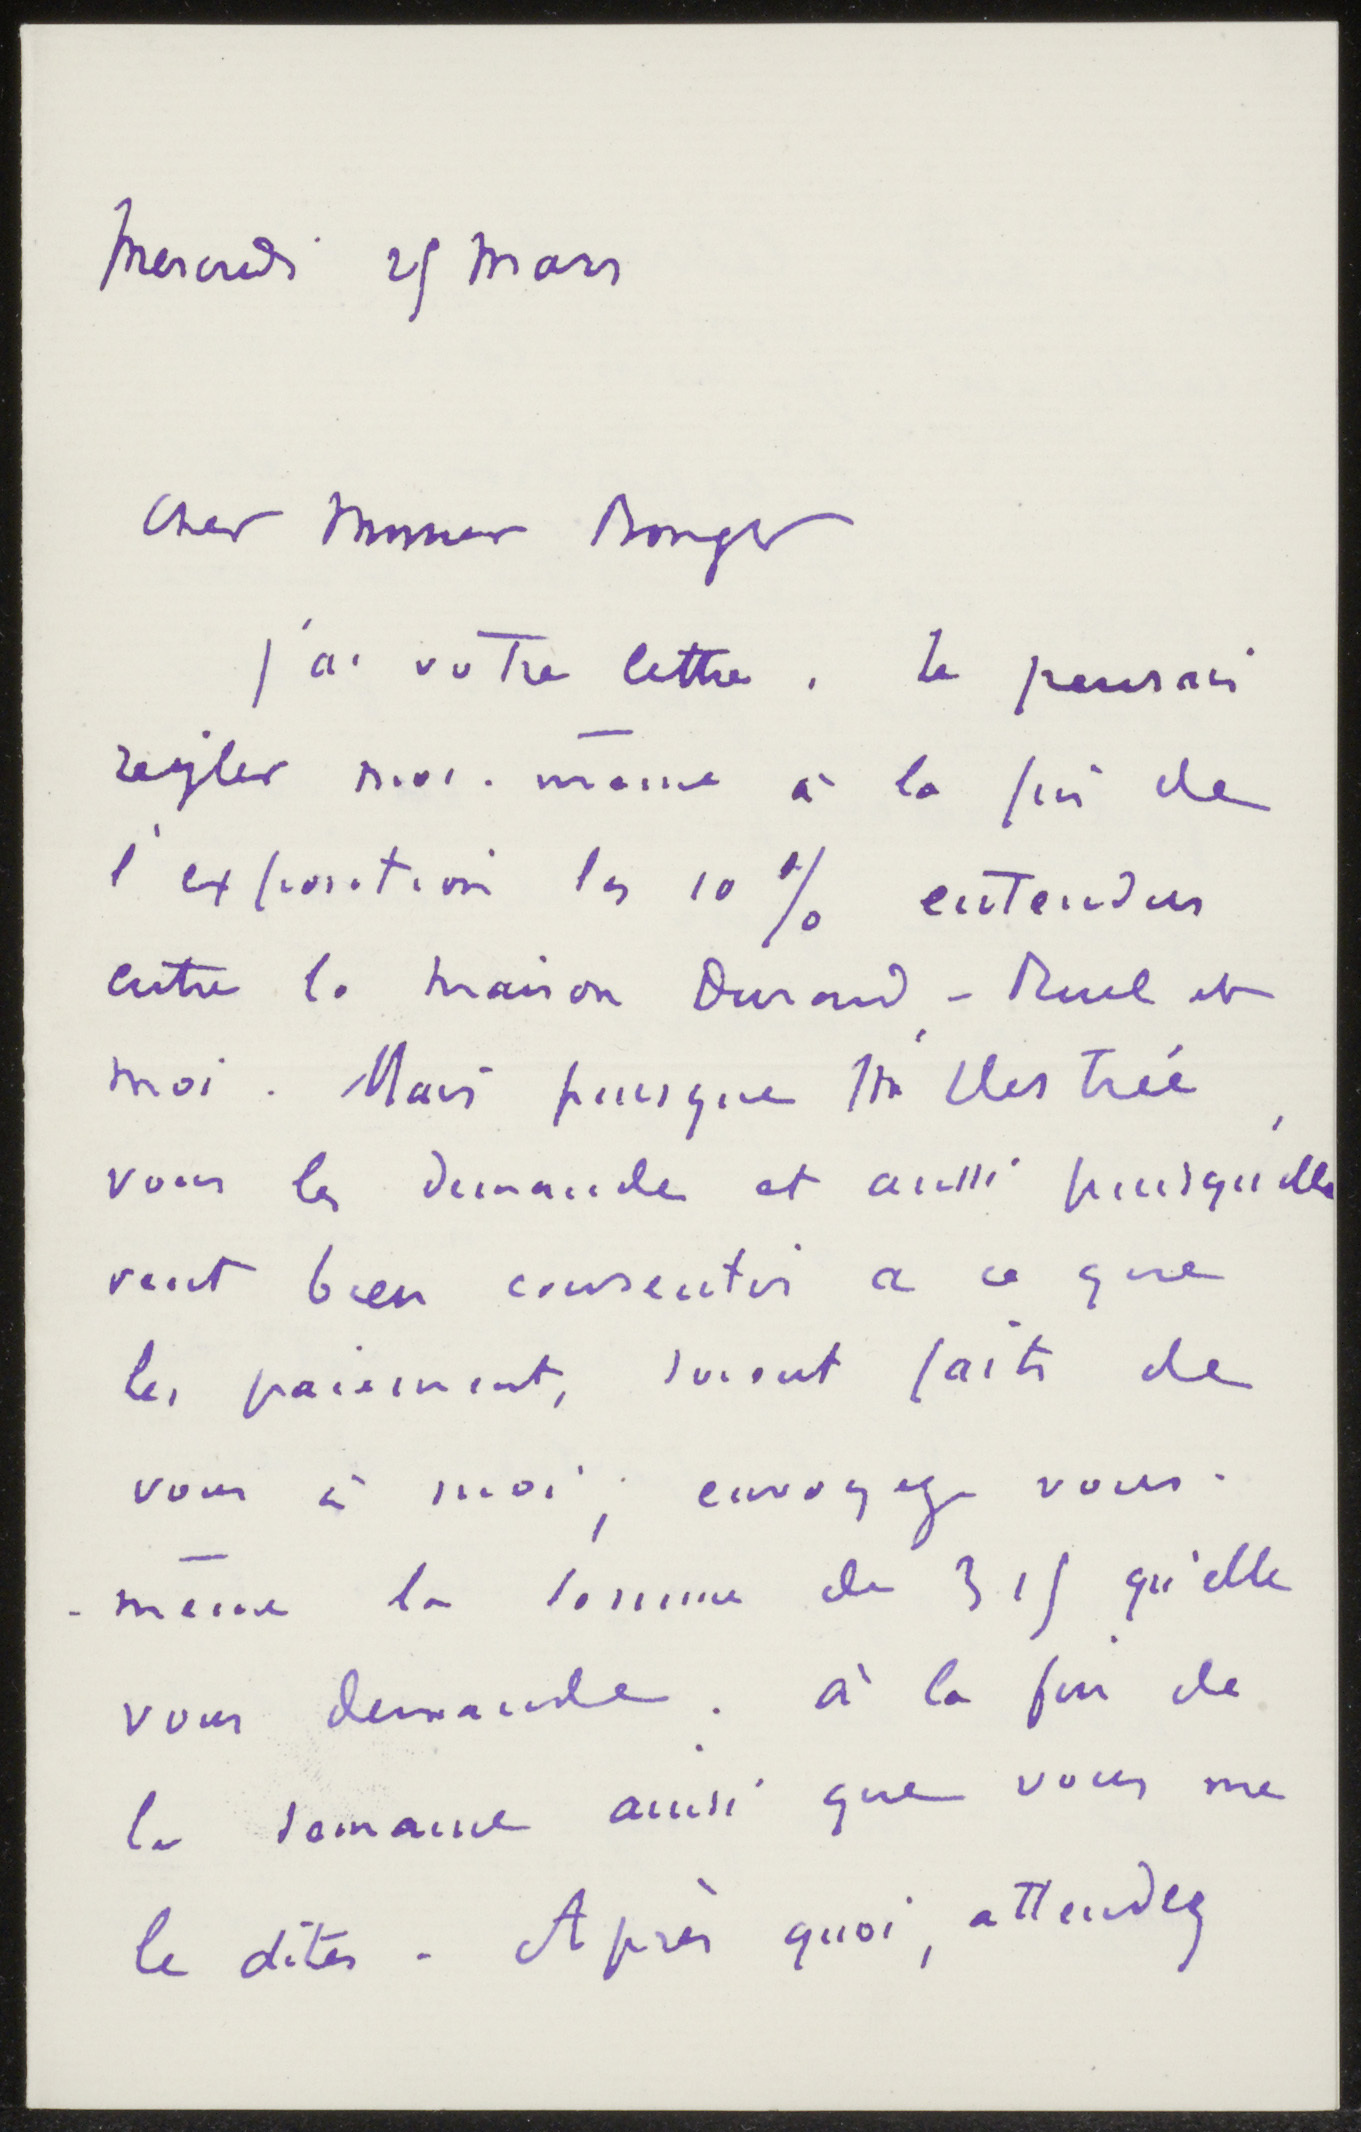 Mercredi 25 Mars
Cher Monsieur Bonger
j'ai votre lettre. Je pensais
régler moi-même à la fin de
l'exposition les 10 % entendus
entre la maison Durand-Ruel et
moi. Mais puisque
vous les demande et aussi puisqu'elle
veut bien consentir a ce que
les paiements soient faits de
vous à moi; envoyez vous-
-même la somme de 315 qu'elle
vous demande. à la fin de
la semaine ainsi que vous me
le dites. Après quoi, attendez